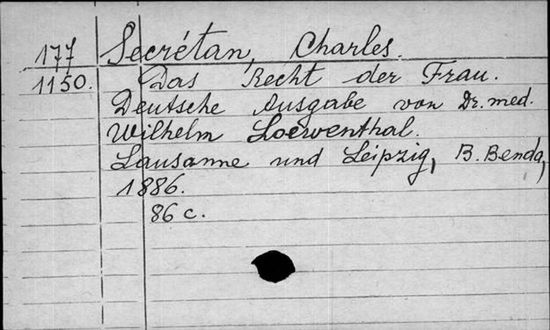 177 Secrétan, Charles.
1150. Das Recht der Frau.
Deutsche Ausgabe von Dr. med.
Wilhelm Loewenthal.
Lausanne und Leipzig, B. Benda,
1886.
86 c.